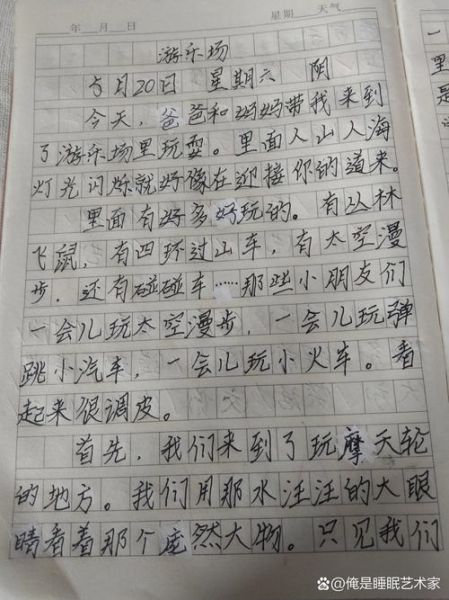 年 月 日 星期 天气
游乐场
5月20日 星期六 阴
今天，爸爸和妈妈带我来到
了游乐场里玩耍。里面人山人海
灯光闪烁就好像在迎接你的道来。
里面有好多好玩的。有丛林
飞鼠，有四环过山车，有太空漫
步，还有碰碰车……那些小朋友们
一会儿玩太空漫步，一会儿玩弹
跳小汽车，一会儿玩小火车。看
起来很调皮。
首先，我们来到了玩摩天轮
的地方。我们用那水汪汪的大眼
睛看着那个庞然大物。只见我们
一
里
是
@俺是睡眠艺术家